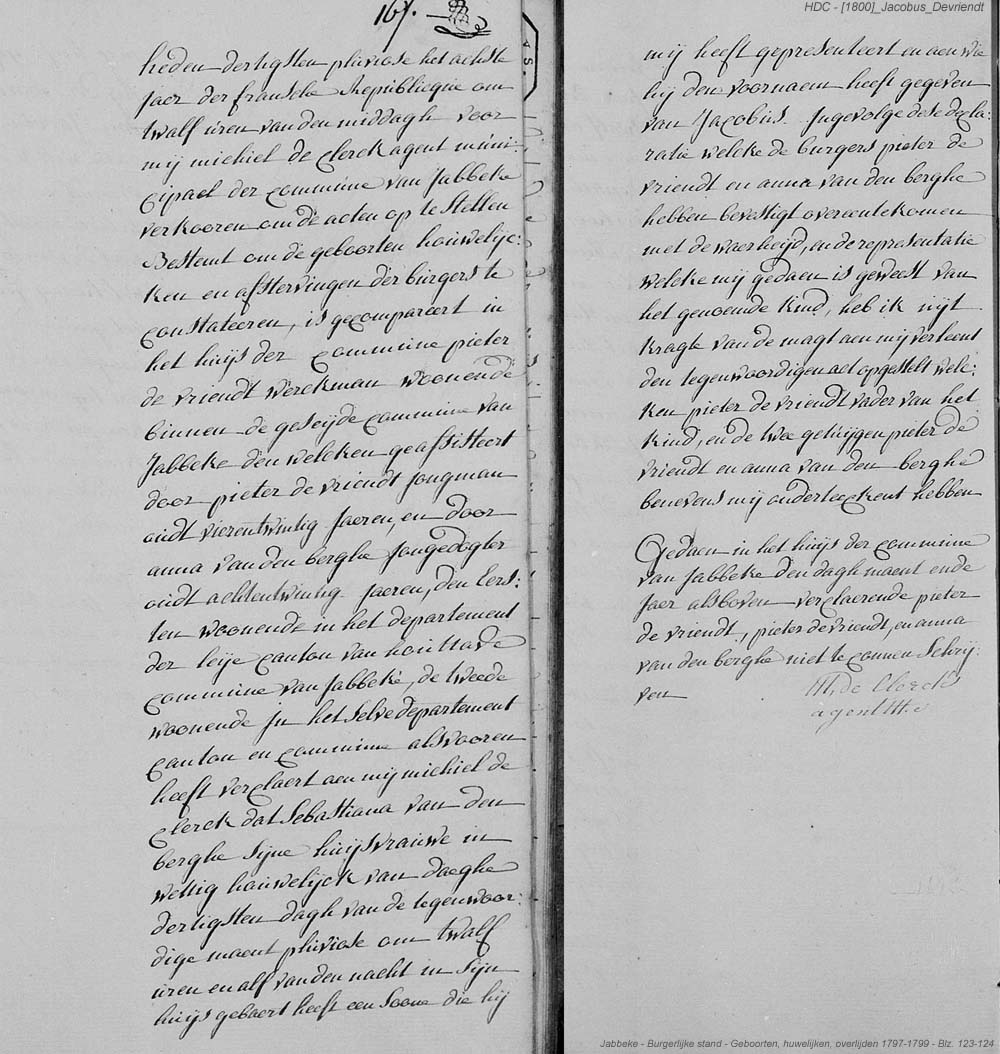 167.
heden dertigsten pluviose het achste
jaer der fransche Republieque om
twalf uren van den middagh voor
mij michiel de Clerck agent muni:
cipael der commune van Jabbeke
verkooren om de acten op te stellen
Bestemt om de geboorten houwelijc:
ken en afstervingen der burgers te
constateeren, is gecompareert in
het huijs der commune pieter
de vriendt werckman woonende
binnen de geseijde commune van
Jabbeke den welcken geassisteert
door pieter de vriendt jongman
oudt vierentwintig Jaeren, en door
anna van den berghe Jongedogter
oudt achtentwintig Jaeren, den Eers:
ten woonende in het departement
der leije canton van houttave
commune van Jabbeke, de tweede
woonende jn het selve departement
canton en commune als vooren
heeft verclaert aen mij michiel de
Clerck dat Sebastiana van den
berghe sijne huijsvrauwe in
wettig houwelijck van daeghe
dertigsten dagh van de tegenwoor:
dige maent pluviose om twalf
uren en alf van den nacht in sijn
huijs gebaert heeft een soone die hij
HDC - [1800]_Jacobus_Devriendt
mij heeft gepresenteert en aen wie
hij den voornaem heeft gegeven
van Jacobus. Jngevolge dese decla:
ratie welcke de burgers pieter de
vriendt en anna van den berghe
hebben bevestigt overeentekomen
met de waerheijd, en de representatie
welcke mij gedaen is geweest van
het genoemde kind, heb ik uijt
kragt van de magt aen mij verleent
den tegenwoordigen act opgestelt wele:
ken pieter de vriendt vader van het
kind, en de twee getuijgen pieter de
vriendt en anna van den berghe
benevens mij onderteeckent hebben
Gedaen in het huijs der commune
van Jabbeke den dagh maent ende
Jaer als boven verclaerende pieter
de vriendt, pieter de vriendt, en anna
van den berghe niet te connen Schrij:
ven
M. de Clerck
agent M.
Jabbeke - Burgerlijke stand - Geboorten, huwelijken, overlijden 1797-1799 - Blz. 123-124